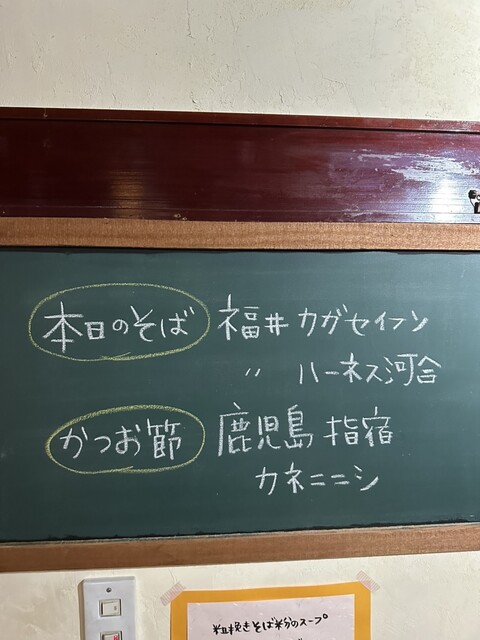 本日のそば 福井 カガセイフン
〃 ハーネス河合
かつお節 鹿児島 指宿
カネニニシ
粗挽きそば粉のスープ